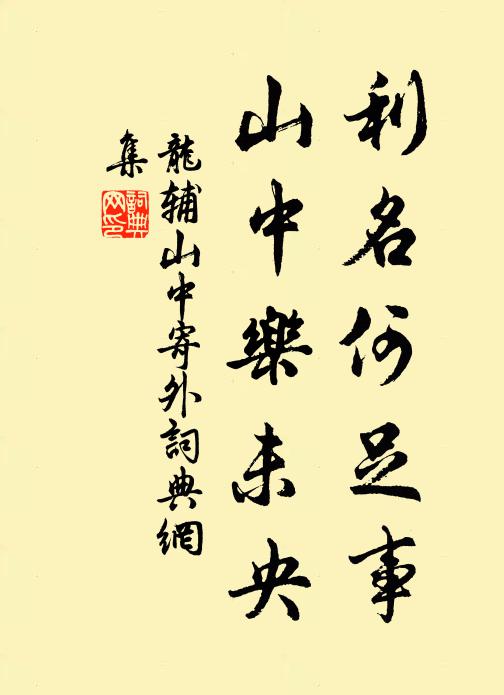 利名何足事
山中樂未央
龍輔山中寄外詞典網
集
詞典
网印